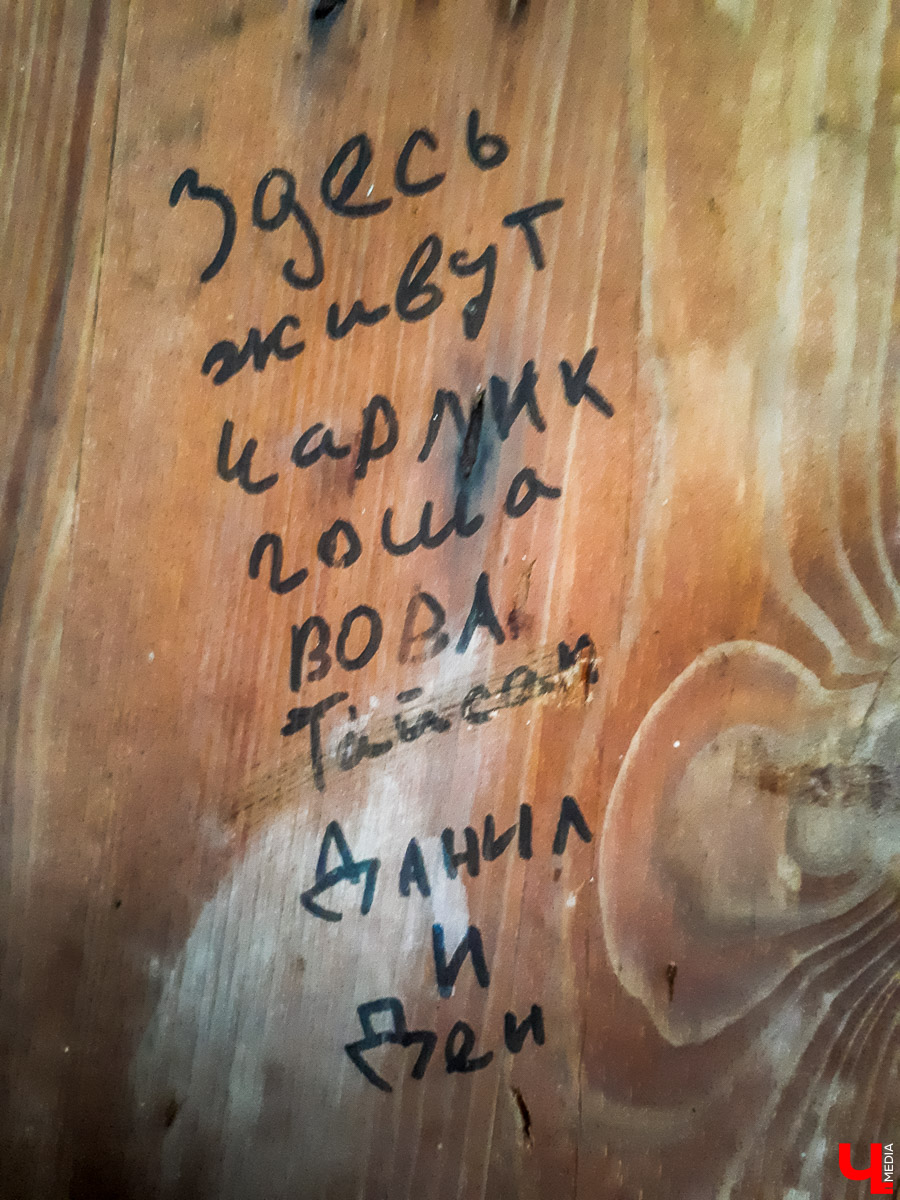 Здесь
живут
Чарлик
гоша
ВОВА
Тайсон
Данил
и
Ден
Ч
MEDIA